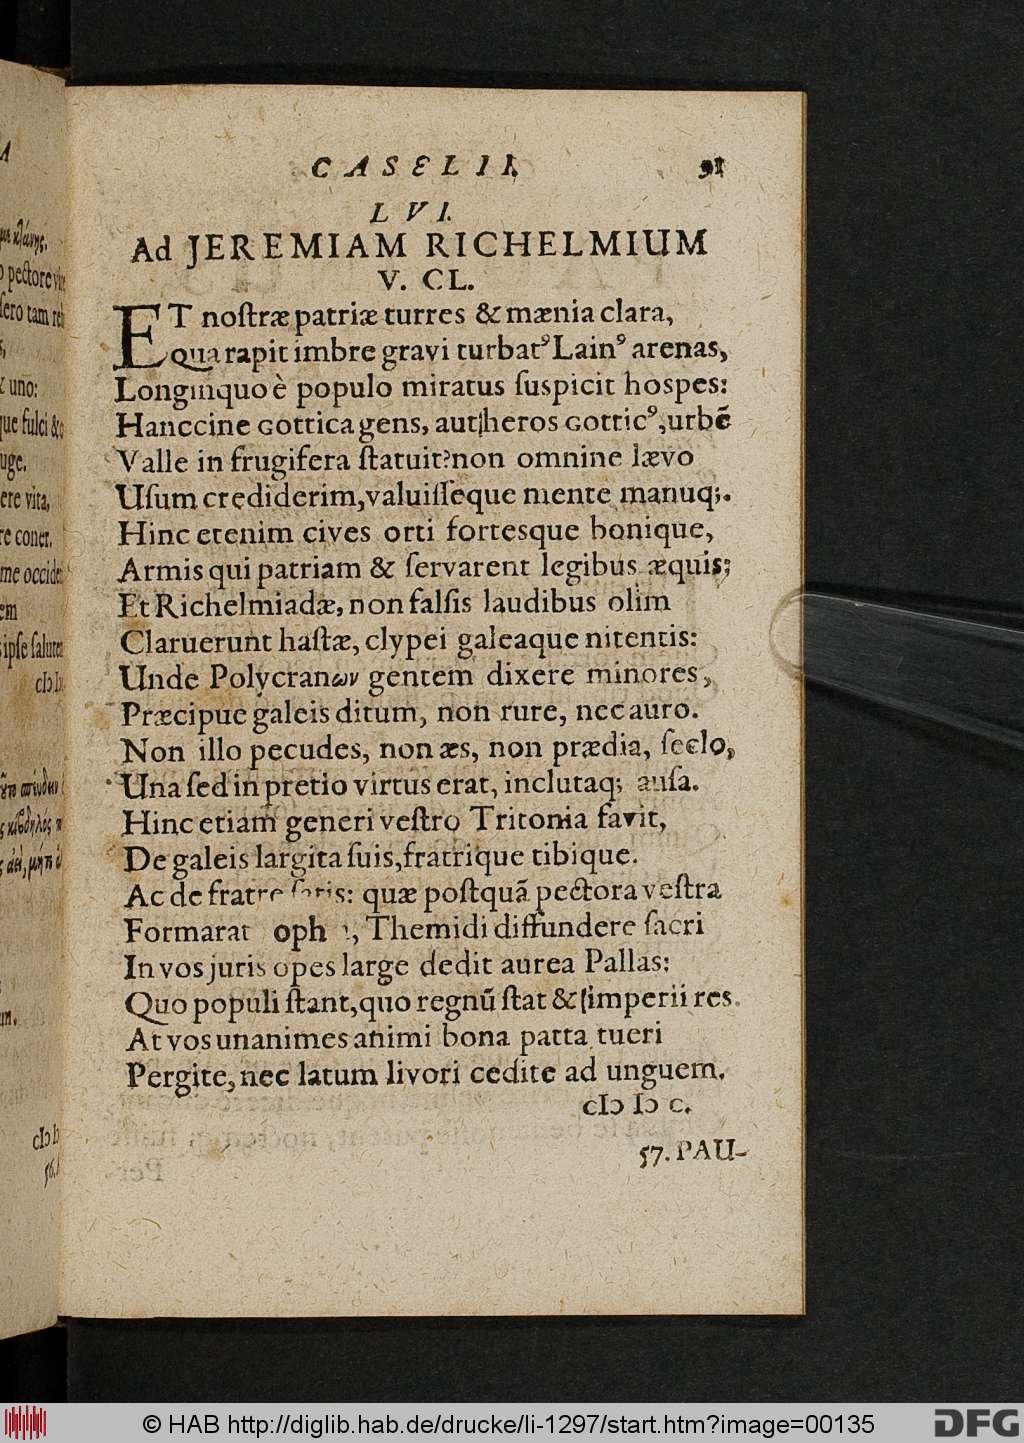 CASELII.
91
LVI.
Ad JEREMIAM RICHELMIUM
V. CL.
ET noſtræ patriæ turres & mænia clara,
Qua rapit imbre gravi turbatꝰ Lainꝰ arenas,
Longinquo è populo miratus ſuspicit hospes:
Hanccine Gottica gens, aut heros Gotticꝰ, urbẽ
Valle in frugifera ſtatuit? non omnine lævo
Uſum crediderim, valuiſſeque mente manuq;.
Hinc etenim cives orti fortesque bonique,
Armis qui patriam & ſervarent legibus æquis;
Et Richelmiadæ, non falſis laudibus olim
Claruerunt haſtæ, clypei galeaque nitentis:
Unde Polycranων gentem dixere minores,
Præcipue galeis ditum, non rure, nec auro.
Non illo pecudes, non æs, non prædia, ſeclo,
Una ſed in pretio virtus erat, inclutaq; auſa.
Hinc etiam generi veſtro Tritonia favit,
De galeis largita ſuis, fratrique tibique.
Ac de fratre ſatis: quæ poſtquã pectora veſtra
Formarat oph , Themidi diffundere ſacri
In vos juris opes large dedit aurea Pallas:
Quo populi ſtant, quo regnũ ſtat & imperii res.
At vos unanimes animi bona patta tueri
Pergite, nec latum livori cedite ad unguem.
cIↄ Iↄ c.
57. PAU-
A
o pectore
ſero tam
& uno:
que fulci &
ere vita,
re coner.
me
em
ipſe
© HAB http://diglib.hab.de/drucke/li-1297/start.htm?image=00135
DFG